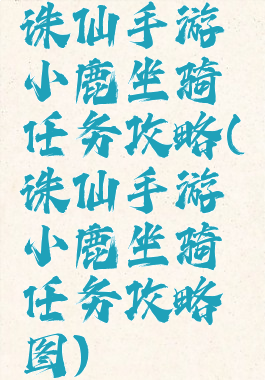 诛仙手游
小鹿坐骑
任务攻略(
诛仙手游
小鹿坐骑
任务攻略
图)